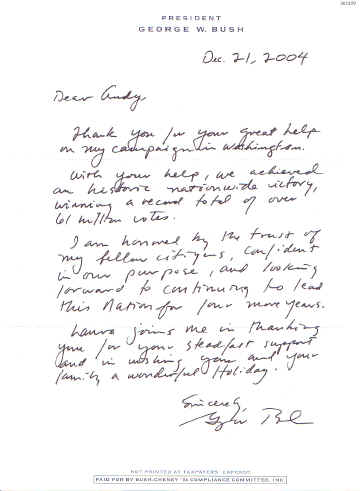 PRESIDENT
GEORGE W. BUSH
Dec. 21, 2004
Dear Andy,
Thank you for your great help
on my campaign in Washington.
With your help, we achieved
an historic nationwide victory,
winning a record total of over
61 million votes.
I am honored by the trust of
my fellow citizens, confident
in our purpose, and looking
forward to continuing to lead
this Nation for four more years.
Laura joins me in thanking
you for your steadfast support
and in wishing you and your
family a wonderful Holiday.
Sincerely,
NOT PRINTED AT TAXPAYERS' EXPENSE
PAID FOR BY BUSH-CHENEY '04 COMPLIANCE COMMITTEE, INC.